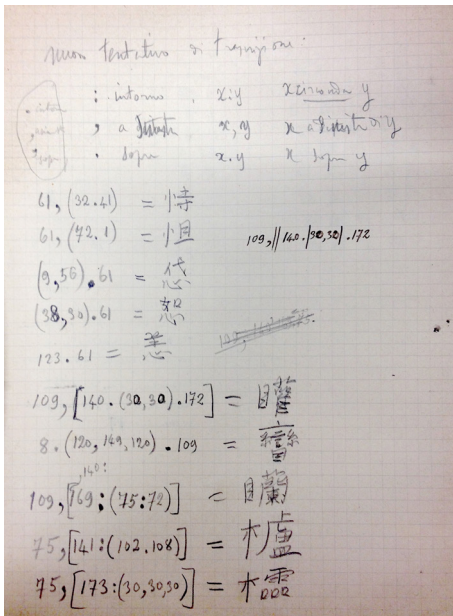 nuovo tentativo di trascrizione
: intorno x:y x circonda y
, a sinistra x,y x a sinistra di y
. sopra x.y x sopra y
61,(32.41) = 恃
61,(72.1) = 怛
109,||140.|30,30|.172
(9,56).61 =
(38,30).61 = 恕
123.61 = 恙
109,[140.(30,30).172] = 矔
8.(120,149,120).109 = 矕
,140:
109,[169:(75:72)] =
75,[141:(102.108)] = 櫨
75,[173:(30,30,30)] = 櫺